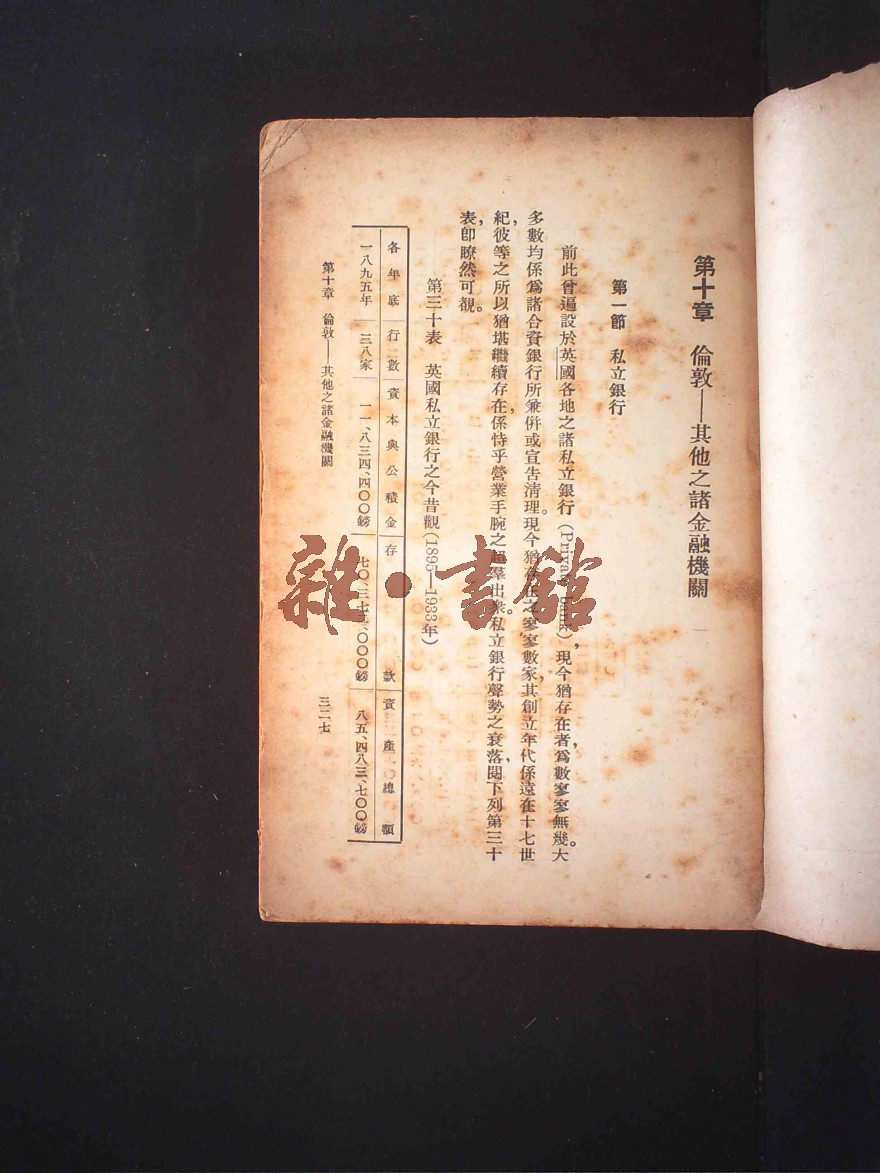 第十章　倫敦——其他之諸金融機關
第一節　私立銀行
前此曾遍設於英國各地之諸私立銀行（Private bank），現今猶存在者，爲數寥寥無幾。大
多數均係爲諸合資銀行所兼併或宣告清理。現今猶存在之寥寥數家，其創立年代係遠在十七世
紀，彼等之所以猶堪繼續存在，係恃乎營業手腕之超羣出衆。私立銀行聲勢之衰落，閱下列第三十
表即瞭然可覩。
第三十表　英國私立銀行之今昔觀（1895—1933年）
各年底　行數　資本與公積金　存款　資產總額
一八九五年　三八家　一一、八三四、四〇〇鎊　七〇、三七三、〇〇〇鎊　八五、四八三、七〇〇鎊
第十章　倫敦——其他之諸金融機關
三二七
雜·書館